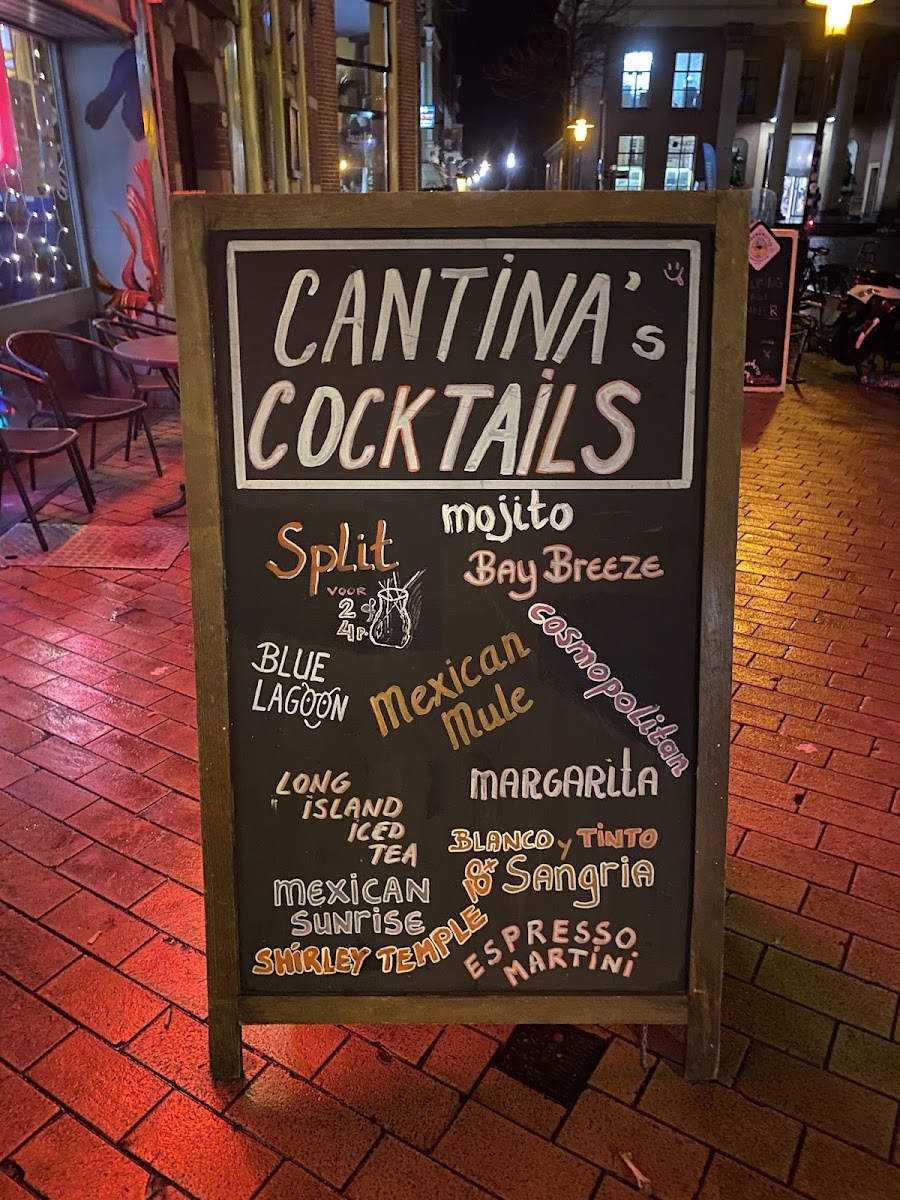 CANTINA's
COCKTAILS
Split
VOOR
2 of
4P
mojito
Bay Breeze
Cosmopolitan
BLUE
LAGOON
Mexican
Mule
MARGARITA
LONG
ISLAND
ICED
TEA
BLANCO y TINTO
Sangria
MEXICAN
SUNRISE
SHIRLEY TEMPLE
ESPRESSO
MARTINI